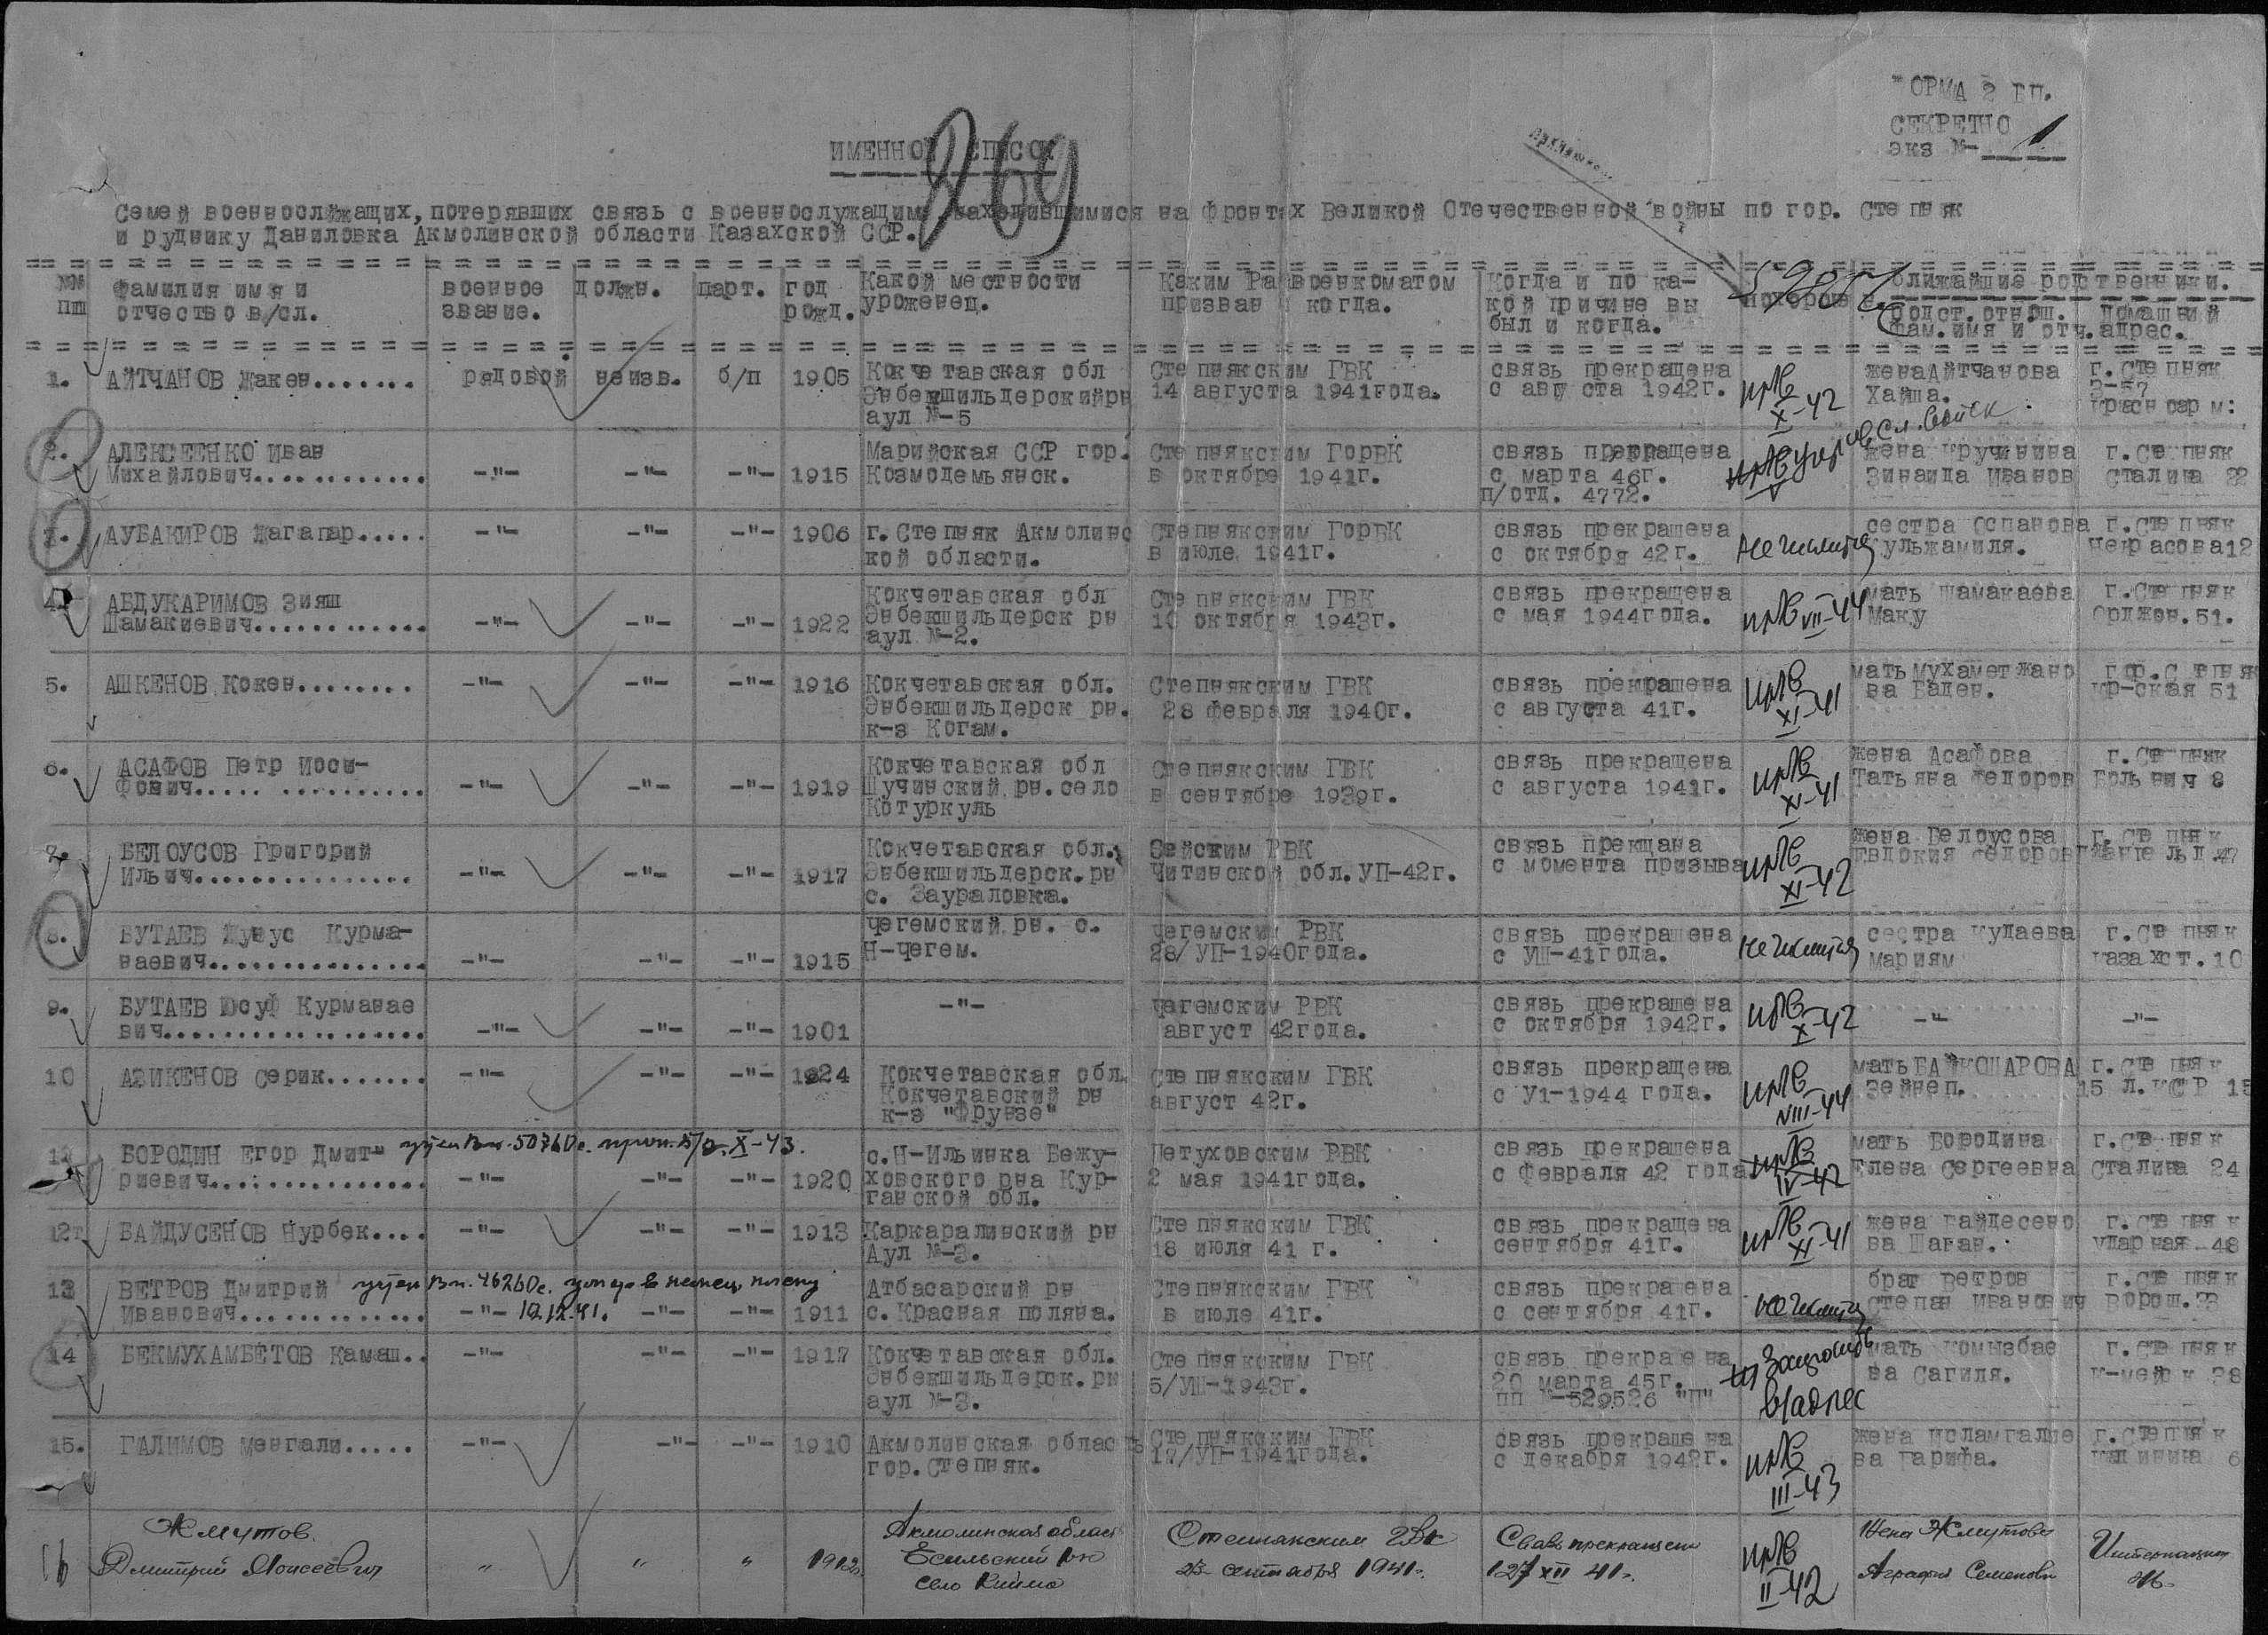 ФОРМА 2 БП.
СЕКРЕТНО
экз №- 1
ИМЕННОЙ СПИСОК
269
Семей военнослжащих, потерявших связь с военнослужащими находившимися на фронтах Великой Отечественной войны по гор. Степняк
и руднику Даниловка Акмолинской области Казахской ССР.
№№ пп
Фамилия имя и отчество в/сл.
военное звание.
должн.
парт.
год рожд.
Какой местности уроженец.
Каким Райвоенкоматом призван и когда.
Когда и по ка-
кой причине вы
был и когда.
похоронен
Ближайшие родственники.
Родст.отнош. фам.имя и отч.
Домашний адрес.
1. АЙТЧАНОВ Жакен....... рядовой неизв. б/п 1905 Кокчетавская обл Степнякским ГВК связь прекращена женаАйтчанова г.Степняк
Энбекшильдерскийрн 14 августа 1941года. с августа 1942г. Хайша. 3-57
аул №-5 X-42 Красноарм:
2. АЛЕКСЕЕНКО Иван Марийская ССР гор. Степнякским ГорВК связь прекращена жена Кручинина г.Степняк
Михайлович............ -"- -"- -"- 1915 Козмодемьянск. в октябре 1941г. с марта 46г. Зинаида Иванов Сталина 22
п/отд. 4772.
3. АУБАКИРОВ Жагапар..... -"- -"- -"- 1906 г.Степняк Акмолинс Степнякским ГорВК связь прекращена сестра Оспанова г.Степняк
кой области. в июле 1941г. с октября 42г. Не числится Кульжамиля. Некрасова12
4. АБДУКАРИМОВ Зияш Кокчетавская обл Степнякским ГВК связь прекращена мать Шамакаева г.Степняк
Шамакиевич............ -"- -"- -"- 1922 Энбекшильдерск рн 10 октября 1943г. с мая 1944года. VII-44 Маку Орджон.51.
аул №-2.
5. АШКЕНОВ Кокен........ -"- -"- -"- 1916 Кокчетавская обл. Степнякским ГВК связь прекращена мать Мухаметжано гор.Степняк
Энбекшильдерск рн. 28 февраля 1940г. с августа 41г. XI-41 ва Баден. Кр-ская 51
к-з Когам.
6. АСАФОВ Петр Иоси- Кокчетавская обл Степнякским ГВК связь прекращена жена Асафова г.Степняк
фович..... .......... -"- -"- -"- 1919 Щучинский рн.село в сентябре 1939г. с августа 1941г. XI-41 Татьяна Федоров Больнич 8
Котуркуль
7. БЕЛОУСОВ Григорий Кокчетавская обл. РВК связь прекщана жена Белоусова г.Степняк
Ильич............... -"- -"- -"- 1917 Энбекшильдерск.рн Читинской обл.УП-42г. с момента призыва XI-42 Евдокия Федоров
с. Заураловка.
8. БУТАЕВ Жунус Курма- Чегемский рн. с. Чегемским РВК связь прекращена сестра Кудаева г.Степняк
наевич............... -"- -"- -"- 1915 Н-Чегем. 28/УП-1940года. с УШ-41года. Не числится Мариям Казахст.10
9. БУТАЕВ Юсуф Курманае -"- Чегемским РВК связь прекращена
вич.................. -"- -"- -"- 1901 август 42года. с октября 1942г. X-42 -"- -"-
10 АЗИКЕНОВ Серик....... -"- -"- -"- 1924 Кокчетавская обл. Степнякским ГВК связь прекращена мать БАЙКОШАРОВА г.Степняк
Кокчетавский рн август 42г. с У1-1944 года. VIII-44 Зейнеп. 15 л.КССР 15
к-з "Фрунзе"
11 БОРОДИН Егор Дмит- учтен Вх.50760с. проп. б/в. X-43. с.Н-Ильинка Бежу- Петуховским РВК связь прекращена мать Бородина г.Степняк
риевич............... -"- -"- -"- 1920 ховского рна Кур- 2 мая 1941года. с февраля 42 года IV-42 Елена Сергеевна Сталина 24
ганской обл.
12 БАЙДУСЕНОВ Нурбек.... -"- -"- -"- 1913 Каркаралинский рн Степнякским ГВК связь прекращена жена Байдесено г.Степняк
Аул №-3. 18 июля 41 г. сентября 41г. XI-41 ва Шаган. Ударная 48
13 ВЕТРОВ Дмитрий учтен Вх.46260с. умер в немец. плену Атбасарский рн Степнякским ГВК связь прекращена брат Ветров г.Степняк
Иванович............. -"- 19.12.41. -"- -"- 1911 с.Красная поляна. в июле 41г. с сентября 41г. не числится Степан Иванович Ворош.
14 БЕКМУХАМБЕТОВ Камаш.. -"- -"- -"- 1917 Кокчетавская обл. Степнякским ГВК связь прекращена мать Комызбае г.Степняк
Энбекшильдерск.рн 5/УШ-1943г. 20 марта 45г. ва Сагиля. К-мейк 38
аул №-3. пп №-529526 "П"
в/адрес
15. ГАЛИМОВ Менгали..... -"- -"- -"- 1910 Акмолинская область Степнякским ГВК связь прекращена жена Исламгалие г.Степняк
гор.Степняк. 17/УП-1941года. с декабря 1942г. III-43 ва Гарифа. Калинина 6
16 Жмутов Акмолинская област Степнякским ГВК Связь прекращена Жена Жмутова
Дмитрий Моисеевич " " " 1912 Есильский р-н 25 сентября 1941г. 27 XII 41г. II-42 Аграфия Семеновн Интернацион
село Кийма